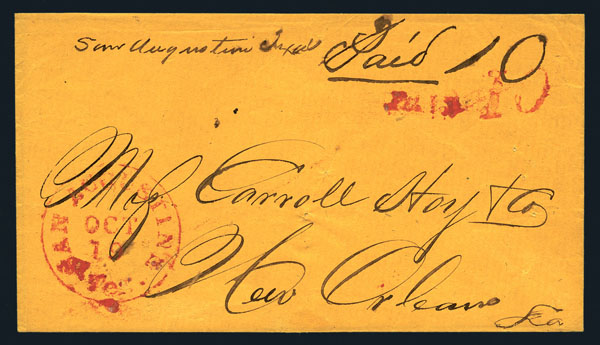 San Augustine Texas Paid 10
PAID 10
Carroll Hoy & Co
SAN AUGUSTINE
OCT
10
New Orleans
La